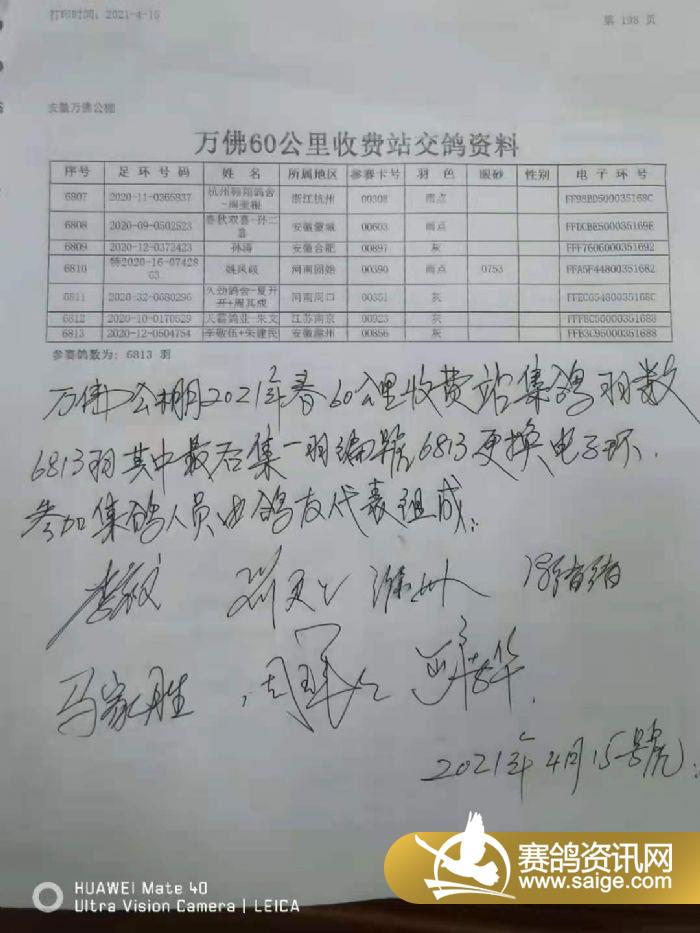 打印时间：2021-4-15
第 198 页
安徽万佛公棚
万佛60公里收费站交鸽资料
序号 足环号码 姓名 所属地区 参赛卡号 羽色 眼砂 性别 电子环号
6807 2020-11-0365837 杭州翱翔鸽舍 浙江杭州 00308 雨点
6808 2020-09-0502523 春秋双喜-孙二喜 安徽 00603 雨点
6809 2020-12-0372423 孙涛 安徽合肥 00897 灰
6810 特2020-16-0742863 姚凤岐 河南固始 00390 雨点 0753
6811 2020-32-0680296 久劲鸽会-夏开开+周其成 河南周口 00351 灰
6812 2020-10-0170529 天霸鸽业-朱文 江苏南京 00923 灰
6813 2020-12-0504754 李敬伍+朱建民 安徽滁州 00856 灰
参赛鸽数为：6813 羽
万佛公棚2021年春60公里收费站集鸽羽数
6813羽其中最后集一羽编號6813更换电子环.
参加集鸽人员由鸽友代表组成：
马家胜
2021年4月15号號
HUAWEI Mate 40
Ultra Vision Camera | LEICA
赛鸽资讯网
www.saige.com